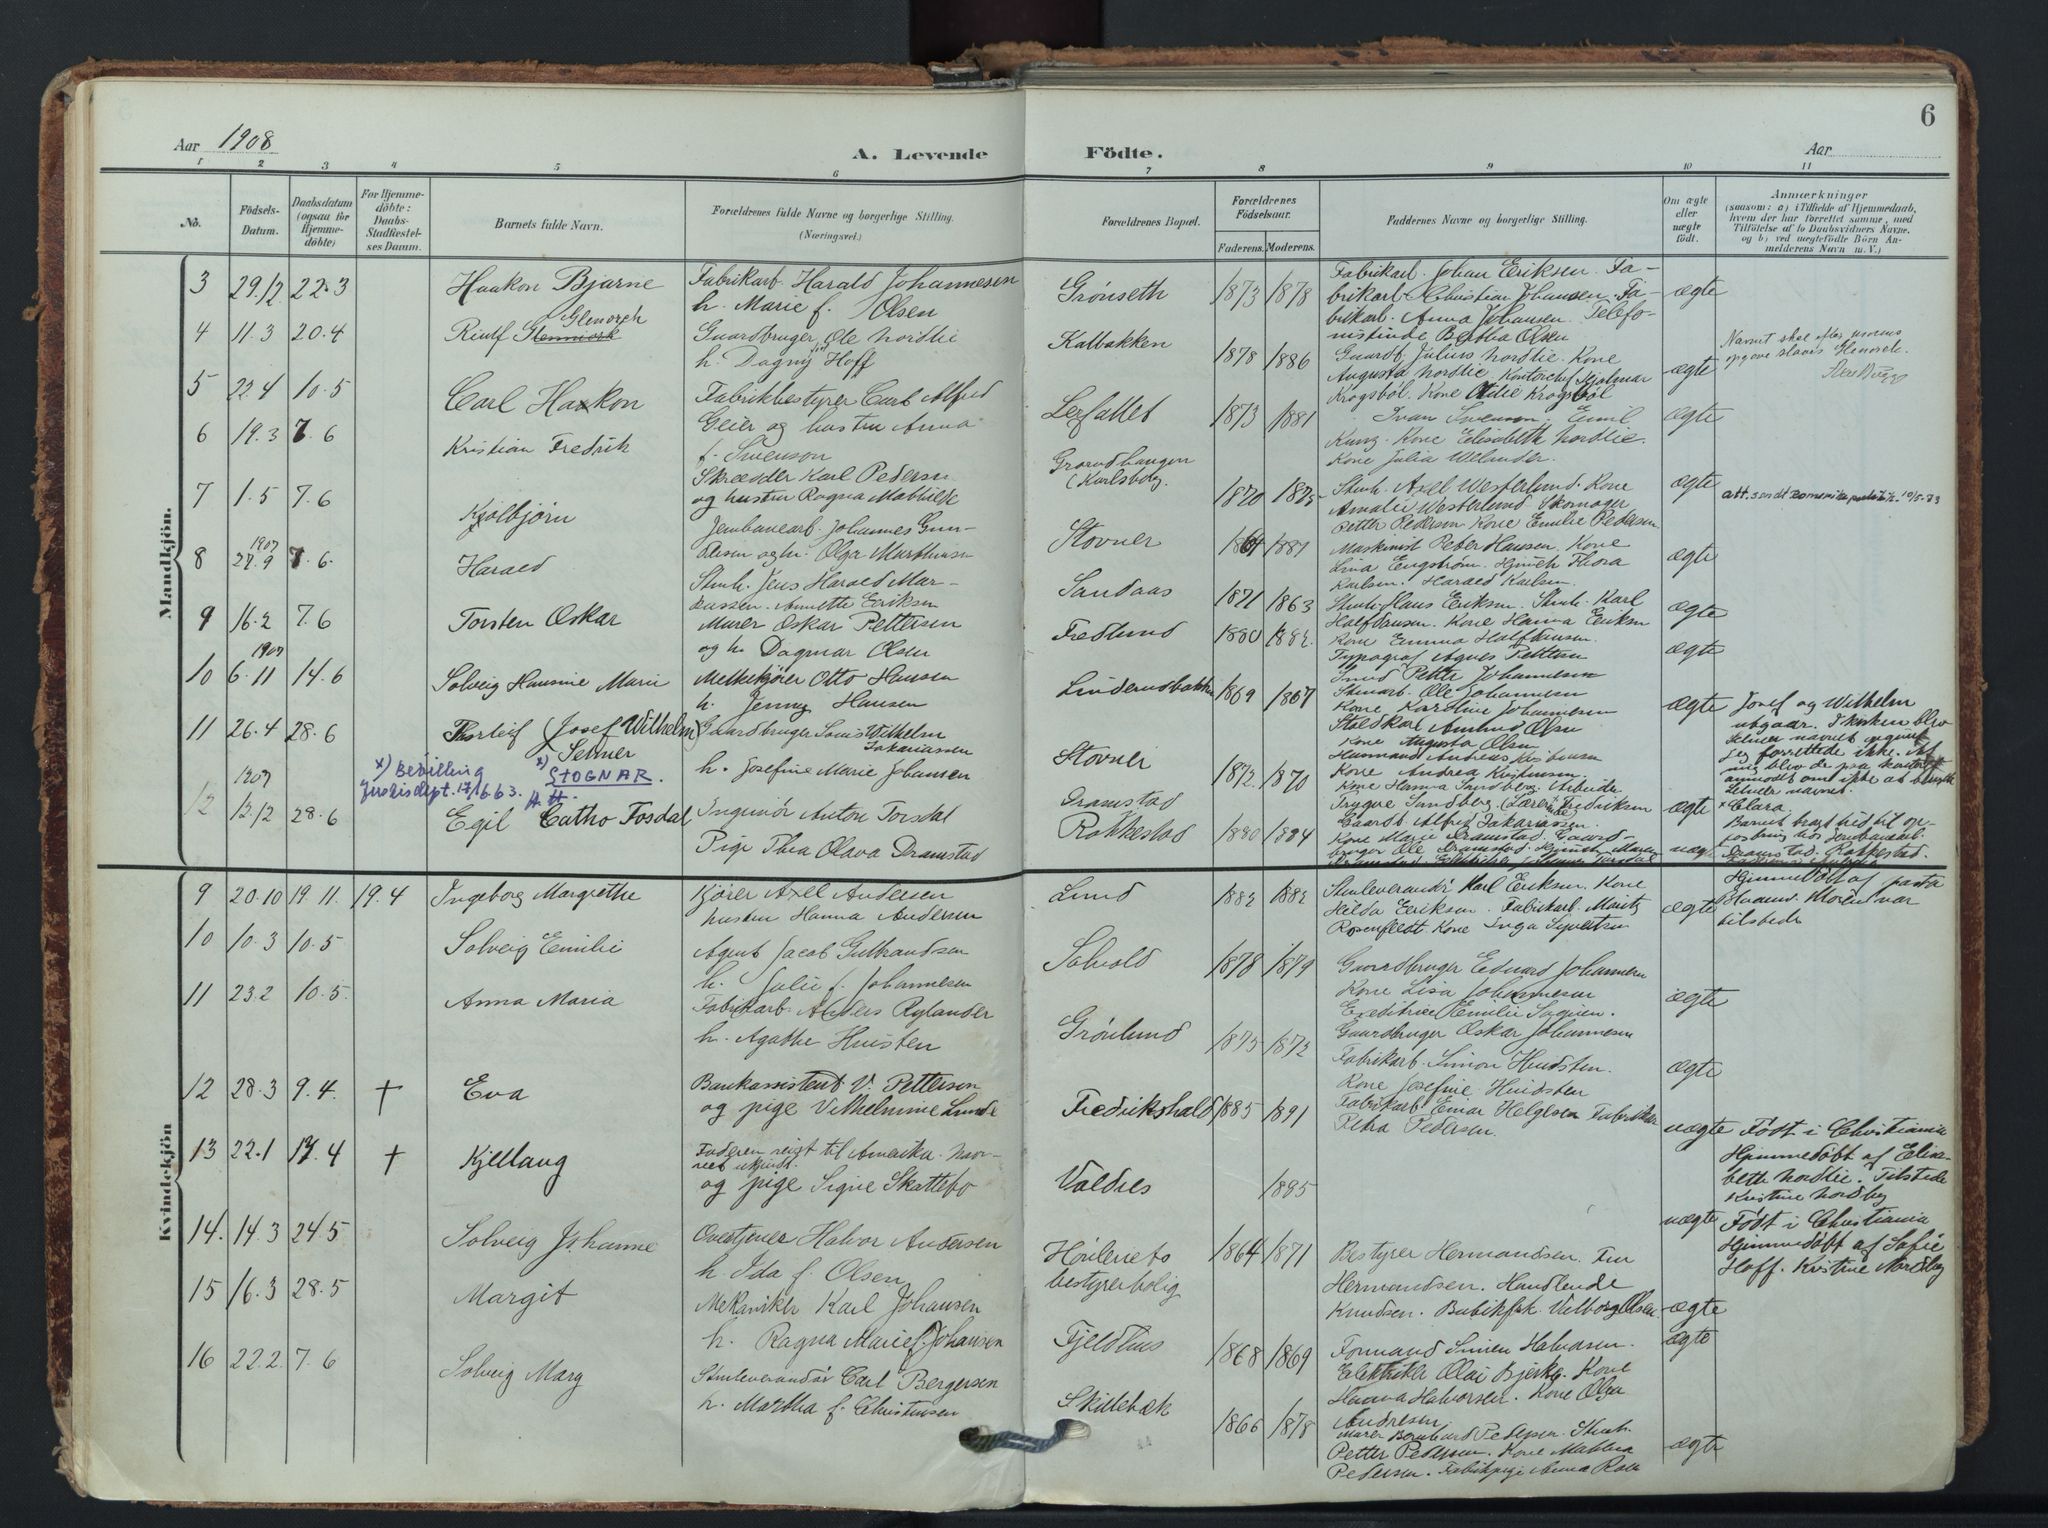 6
Aar 1908
A. Levende Födte.
Aar
1 2 3 4 5 6 7 8 9 10 11
No.
Födsels-Datum.
Daabsdatum (ogsaa for Hjemmedöbte)
For Hjemmedöbte: Daabs-Stadfæstelses Datum.
Barnets fulde Navn.
Forældrenes fulde Navne og borgerlige Stilling. (Næringsvei.)
Forældrenes Bopæl.
Forældrenes Födselsaar.
Faderens. Moderens.
Faddernes Navne og borgerlige Stilling.
Om ægte eller uægte födt.
Anmærkninger
(saasom: a) i Tilfælde af Hjemmedaab, hvem der har forrettet samme, med Tilföielse af to Daabsvidners Navne. og b) ved uægtefödte Börn Anmelderens Navn m. V.)
Mandkjön.
3 29/2 22.3 Haakon Bjarne Fabrikarb. Harald Johannesen
h. Marie f. Olsen
Grönseth 1873 1878
Fabrikarb. Johan Eriksen. Fa-
brikarb. Christian Johansen. Fa-
brikarb. Anna Johansen. Telefo-
nistinde Olsen
ægte
4 11.3 20.4 Reiulf Glenorch Gaardbruger Ole Nordlie
h. Dagny Hoff
Kalbakken 1878 1886
Gaardb. Julius Nordlie. Kone
Augusta Nordlie Kontorchef Hjalmar
Krogsböl. Kone Krogsböl
ægte
Navnet skal efter
opgave staves Glenorch.
5 22.4 10.5 Carl Haakon Fabrikbestyrer Carl Alfred
Geier og hustru Anna
f. Swenson
Lerfallet 1873 1881
Ivan Swenson. Emil
Kunz. Kone Elisabeth Nordlie.
Kone Julia Welander.
ægte
6 19.3 7.6 Kristian Fredrik
Skrædder Karl Pedersen
og hustru Ragna Mathilde
Grorudhaugen
(Karlsborg.
1870 1875
Stenh. Axel Westerlund. Kone
Amalie Westerlund. Skomager
Petter Pedersen Kone Emilie Pedersen
ægte
7 1.5 7.6 Kjolbjörn
Jernbanearb. Johannes Gun-
dersen og h. Olga Marthinsen
Stovner 1864 1881
Maskinist Peter Hansen. Kone
Lina Engström. Thora
Karlsen. Harald Karlsen.
ægte
8 1907 27.9 7.6 Harald
Stenh. Jens Harald Mar-
kussen. Annette Eriksen
Sandaas 1871 1863
Stenh. Hans Eriksen. Stenh. Karl
Halfdansen. Kone Hanna Eriksen
Kone Emma Halfdansen.
ægte
9 16.2 7.6 Torsten Oskar
Murer Oskar Pettersen
og h. Dagmar Olsen
Fredlund 1880 1882.
Typograf Agnes Pettersen
Petter Johannesen
ægte
10 1907 6.11 14.6 Solveig Hansine Marie
Melkekjörer Otto Hansen
h. Jenny Hansen
Linderudbakken 1869 1867
Stenarb. Ole Johannesen
Kone Karoline Johannesen
Staldkarl Amund Olsen
Kone Augusta Olsen
ægte
11 26.4 28.6 Thorleif (Josef Wilhelm)
Selmer
x) STOGNAR.
x) Bevilling
Justisdept. 17/6.63. H.H.
Gaardbruger Louis Wilhelm
Zakariassen
h. Josefine Marie Johansen
Stovner 1872. 1870
Husmand Andreas Kristiansen
Kone Andrea Kristiansen
Kone Hanna Sandberg. Arbeider
Trygve Sandberg. Lærer Fredriksen
Gaardb. Alfred Zakariassen.
ægte
Josef og Wilhelm
udgaar. I kirken blev
Selmer navnet opgivet
12 1907 12/12 28.6 Egil Catho Fosdal
Ingeniör Anton Torsdal
Pige Thea Olava Dramstad
Dramstad
Rakkestad 1880 1884
Kone Marie Dramstad. Gaard-
bruger Ole Dramstad.
uægte
x Clara.
Dramstad. Rakkestad.
att. sendt 10/5.73
Kvindekjön
9 20.10 19.11. 19.4 Ingeborg Margrethe
Kjörer Axel Andersen
hustru Hanna Andersen
Lund 1882 1882
Stenleverandör Karl Eriksen. Kone
Hilda Eriksen. Fabrikarb. Moritz
Rosenfeldt Kone Inga Syvertsen
ægte
Hjemmedöbt af pastor
tilstede
10 10.3 10.5 Solveig Emilie
Agent Jacob Gulbrandsen
h. Julie f. Johannesen
Solvold 1878 1879
Gaardbruger Eduard Johannesen
Kone Lisa Johannesen
Emilie
ægte
11 23.2 10.5. Anna Maria
Fabrikarb. Anders Rylander
h. Agathe Huisten
Grönlund 1875 1872
Gaardbruger Oskar Johannesen
Fabrikarb. Simon Huidsten.
Kone Josefine Huidsten
ægte
12 28.3 9.4. + Eva
Bankassistent V. Petterson
og pige Vilhelmine Lunde
Fredrikshald 1885 1891
Fabrikarb. Einar Helgesen
Petra Pedersen.
uægte
Födt i Christiania
Hjemmedöbt af Elisa-
beth Nordlie. Tilstede
Kristine Nordby
13 22.1 17.4 + Kjellaug
Faderen reist til Amerika. Nav-
net ukjendt.
og pige Signe Skattebo
Valdres 1885
uægte
Födt i Christiania
Hjemmedöbt af Sofie
Hoff. Kristine Nordby
14. 14.3 24.5 Solveig Johanne
Halvor Andersen
h. Ida f. Olsen
Höilenebo
bestyrerbolig
1864 1871
Bestyrer Hermandsen. Fru
Hermandsen. Handlende
Knudsen. Olsen.
ægte
15 16.3 28.5 Margit
Mekaniker Karl Johansen
h. Ragna Marie f. Johansen
Fjeldhus 1868 1869
Formand Simen Halvorsen.
Elektriker Olai Bjerke. Kone
Hanna Halvorsen. Kone Olga
Andresen
ægte
16 22.2. 7.6 Solveig Marg
Stenleverandör Carl Bergersen
h. Martha f. Christensen
Skillebæk 1866 1878
Murer Bernhard Pedersen. Stenh.
Petter Pedersen. Kone Mathea
Pedersen. Fabrikpige Anna
ægte